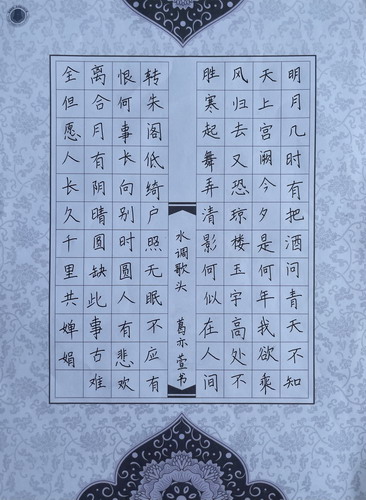 明月几时有把酒问青天不知
天上宫阙今夕是何年我欲乘
风归去又恐琼楼玉宇高处不
胜寒起舞弄清影何似在人间
水调歌头 葛亦萱书
转朱阁低绮户照无眠不应有
恨何事长向别时圆人有悲欢
离合月有阴晴圆缺此事古难
全但愿人长久千里共婵娟